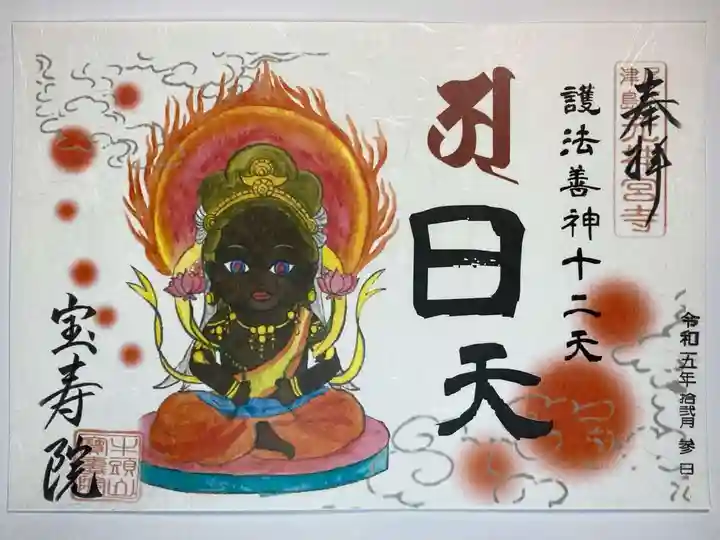 奉拝
護法善神十二天
日天
令和五年 拾弐月 参日
宝寿院
牛頭山